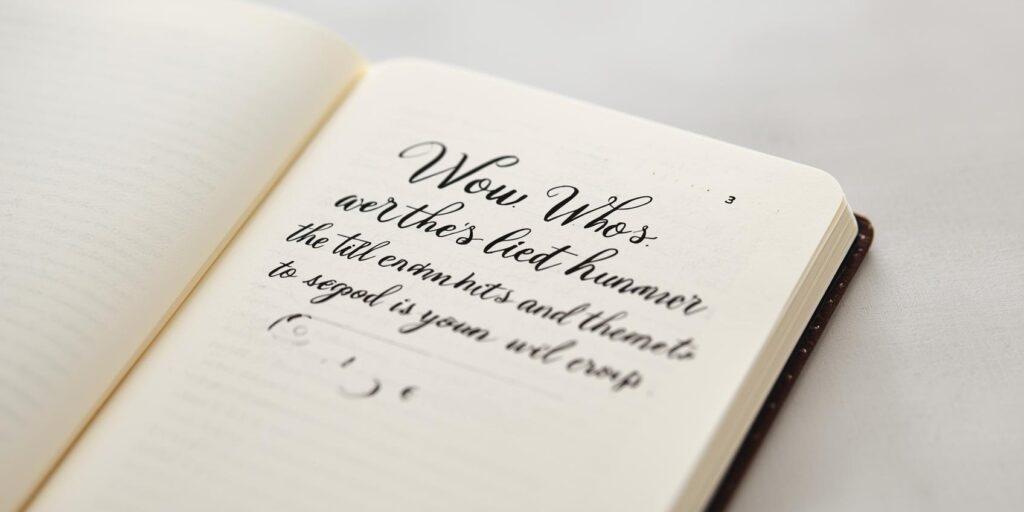 Wow. Who's.
aver the's lied hunmer
the till enmnhits and themets
to segpod is youn wil eroup.
3